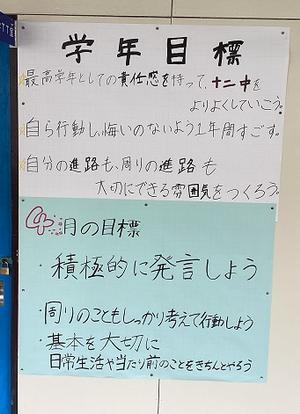 学年目標
☆最高学年としての責任感を持って、十二中を
よりよくしていこう。
☆自ら行動し、悔いのないよう1年間すごす。
☆自分の進路も、周りの進路も
大切にできる雰囲気をつくろう。
4月の目標
・積極的に発言しよう
・周りのこともしっかり考えて行動しよう
・基本を大切に
日常生活や当たり前のことをきちんとやろう